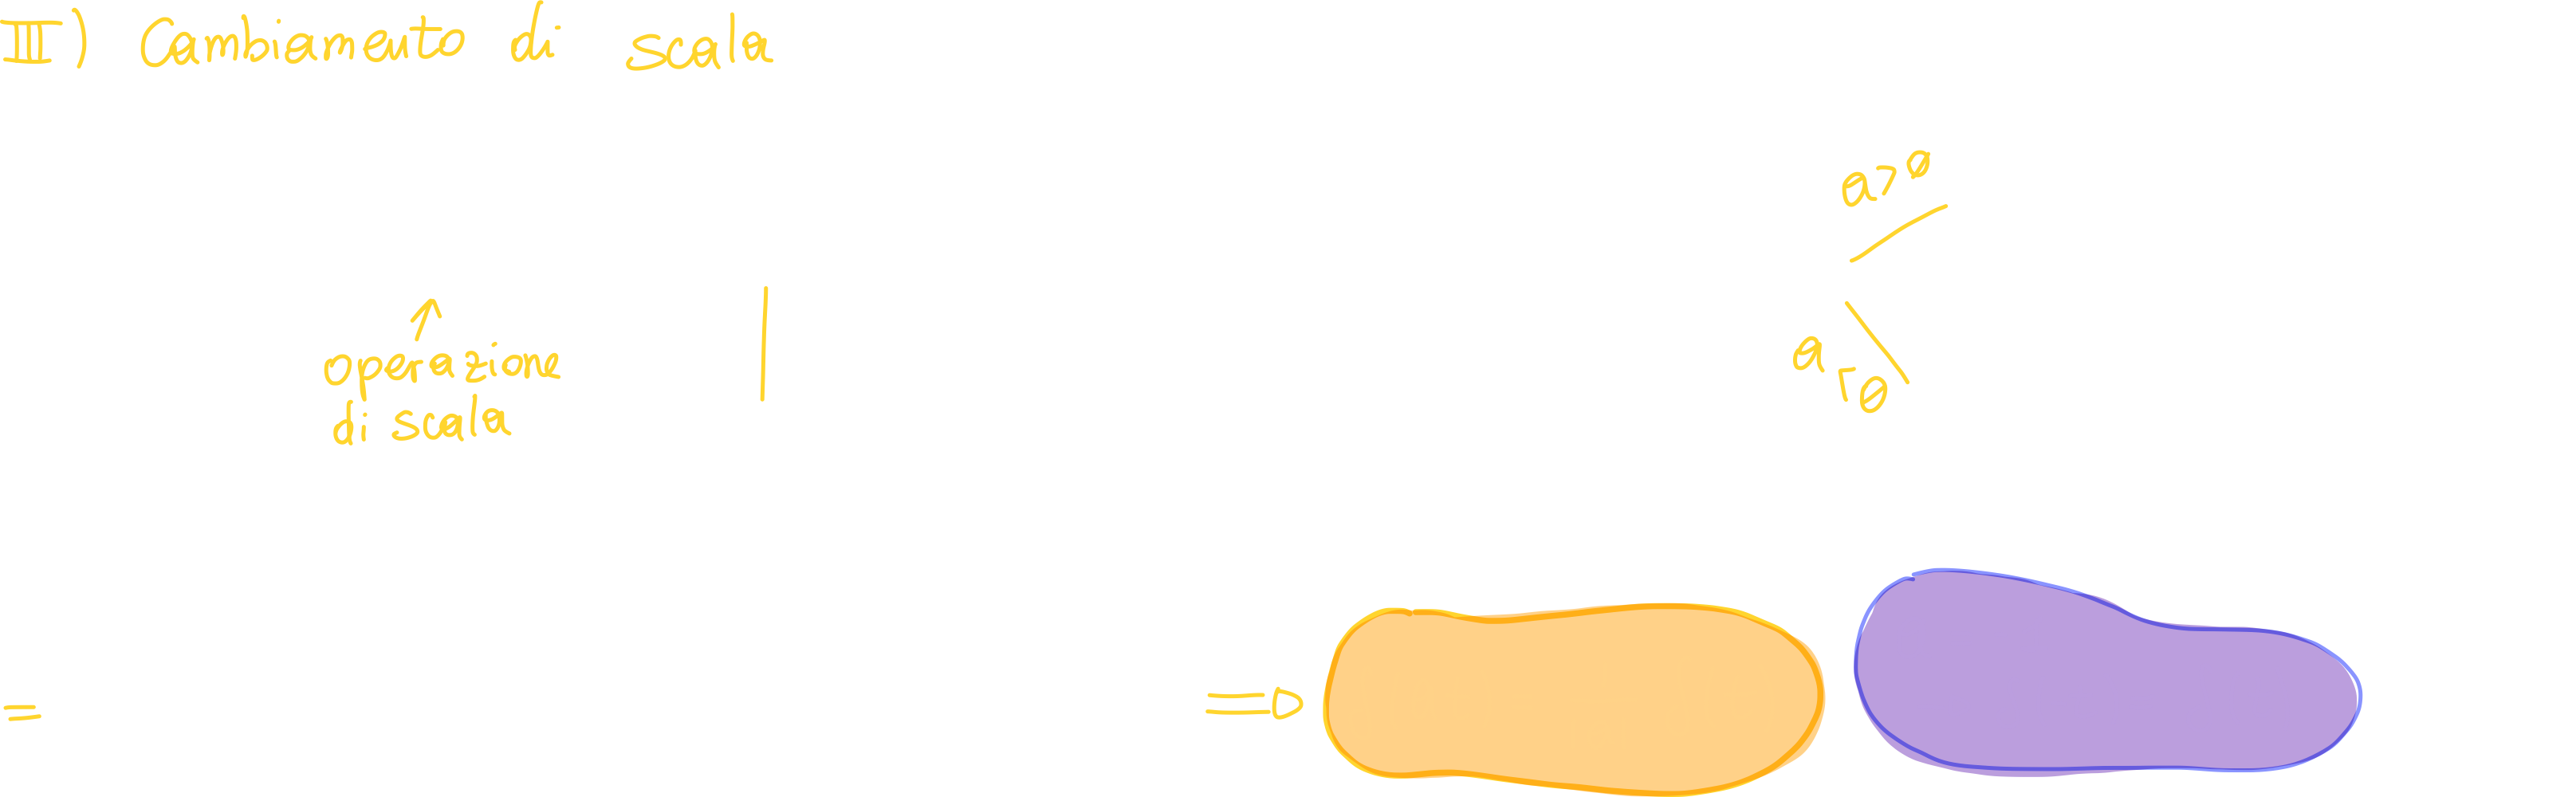 III) Cambiamento di scala
a>0
operazione
a<0
di scala
=
=>